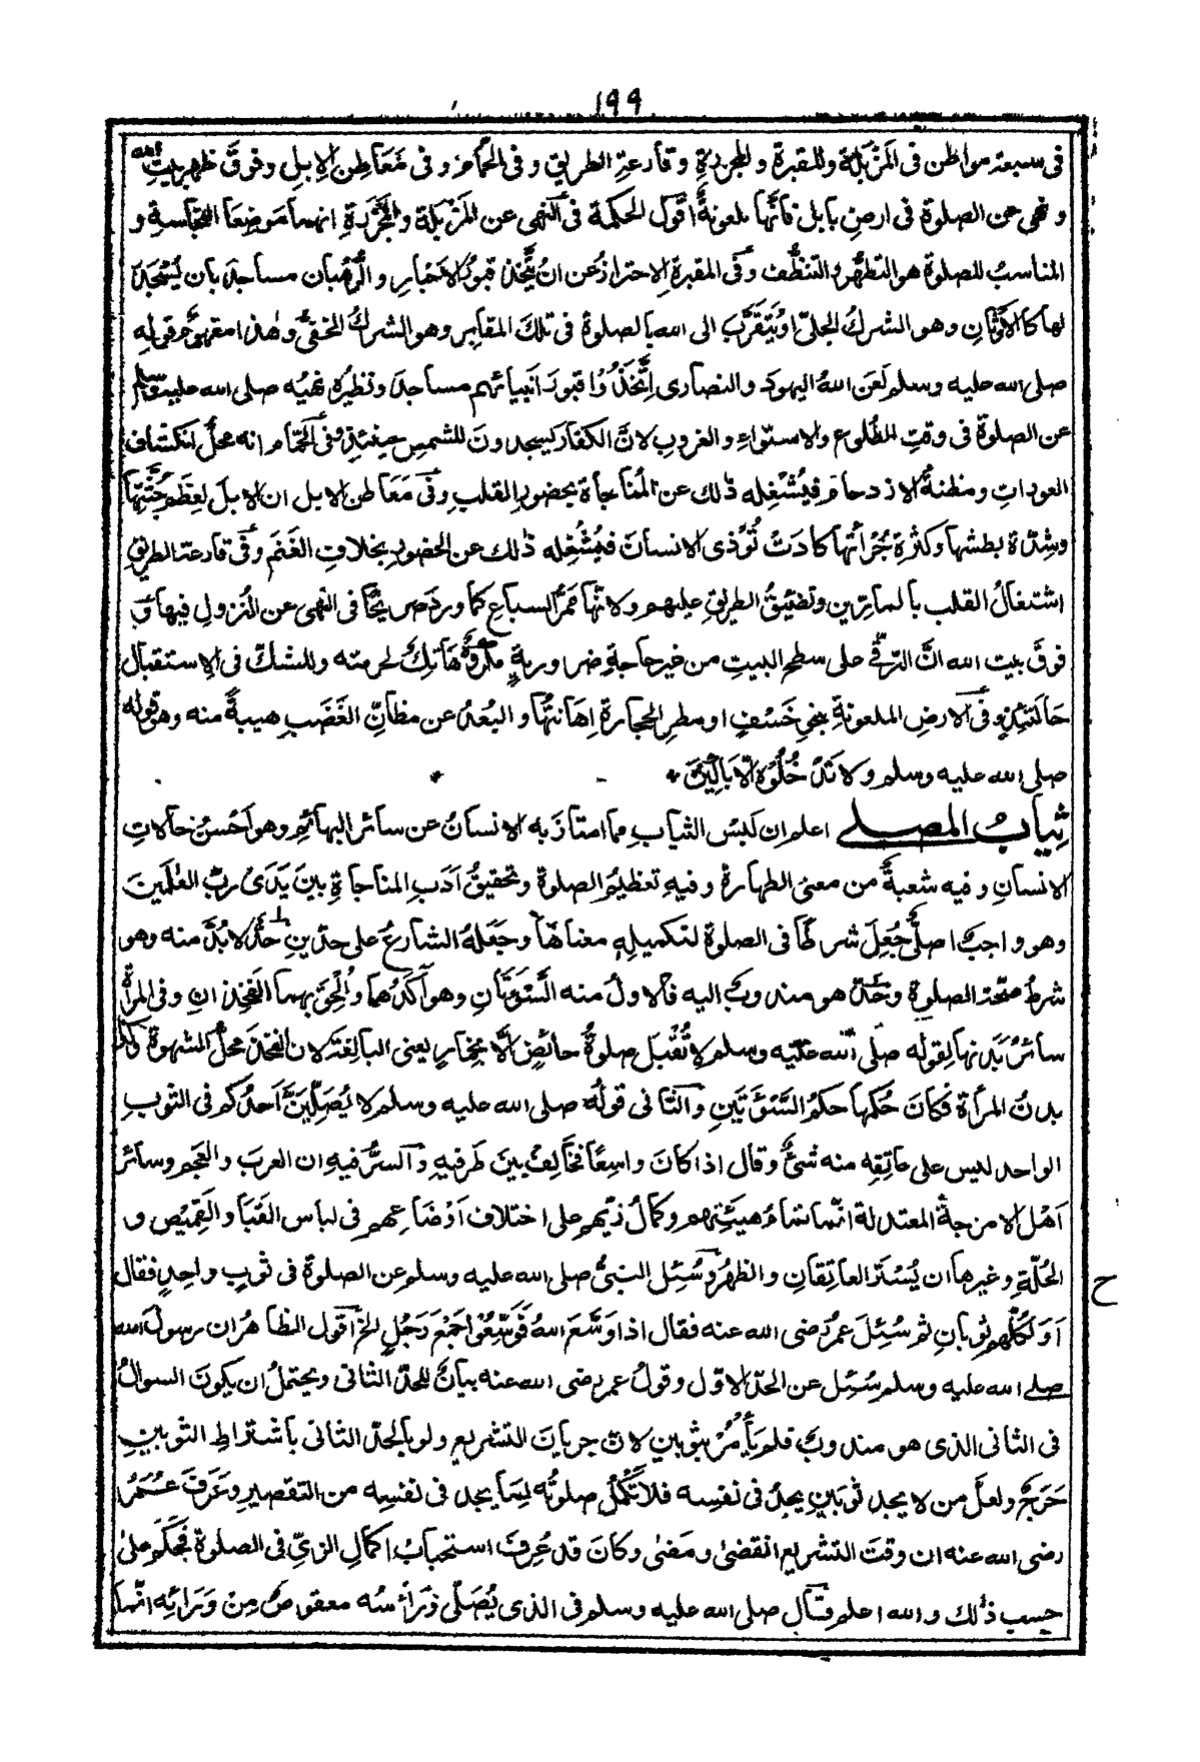 ۱۹۹
فى سبعة مواطن فى المَزْبَلَة والمقبرة والمجزرةِ وقارعةِ الطريقِ وفى الحمَّامِ وفى مَعَاطِنِ الابِلِ وفوقَ ظهرِ بيتِ الله
ونهى عن الصلوة فى ارضِ بابل فانَّها ملعونةٌ اقول الحكمة فى النهى عن المَزْبَلة والمَجْزَرةِ انهما مَوضِعَا النجاسةِ و
المناسبُ للصلوة هو التطهُّر والتنظُّف وفى المقبرةِ الاحترازُ عن انْ يُتَّخذ قبورُ الاَحْبارِ والرُّهْبان مساجدَ بان يُسْجَدَ
لها كالاَوْثانِ وهو الشرك الجلىّ او يُتَقَرَّبَ الى الله بالصلوة فى تلكَ المقابر وهو الشركُ الخفىُّ وهٰذا مفهوم قولِه
صلى الله عليه وسلم لَعَنَ اللهُ اليهودَ والنصارى اِتَّخَذُوْا قبورَ اَنبيائهم مساجدَ ونظيرُه نهيُه صلى الله عليه وسلم
عن الصلوة فى وقتِ الطُلوع والاستواءِ والغروبِ لانَّ الكفارَ يسجدونَ للشمسِ حينئذٍ وفى الحمّام انه محلُّ انكشاف
العوراتِ ومظنةُ الازدحام فيُشْغِله ذلك عن المُناجاة بحضورِ القلبِ وفى مَعَاطن الابل ان الابلَ لعِظَمِ جُثَّتِها
وشدّة بطشها وكثرة جُرْأتها كادَتْ تُوْذى الانسانَ فيُشْغِله ذلك عن الحضورِ بخلافِ الغَنَمِ وفى قارعة الطريقِ
اشتغالُ القلب بالمارّين وتضييقُ الطريقِ عليهم ولانَّها مَمَرُّ السباعِ كما ورد صريحًا فى النهى عن النزولِ فيها وَ
فوقَ بيت الله انَّ الترقّى على سطح البيتِ من غير حاجةٍ ضروريةٍ مكروهٌ هَاتِكٌ لحرمته وللشكّ فى الاستقبال
حَالَتَئِذٍ وفى الارضِ الملعونةِ بنحوِ خَسْفٍ او مطرِ الحجارة اِهَانتُها والبُعدُ عن مظانّ الغَضَبِ هيبةً منه وهو قوله
صلى الله عليه وسلم ولا تَدْخُلُوْه الّا بَاكِيْنَ
ثِيابُ المصلى اعلم ان لَبْسَ الثيابِ مما امتازَ به الانسانُ عن سائر البهائمِ وهو اَحْسنُ حالاتِ
الانسانِ وفيه شعبةٌ من معنى الطهارة وفيهِ تعظيمُ الصلوة وتحقيقُ اَدَبِ المناجاةِ بينَ يَدَىْ ربِّ العٰلَمِينَ
وهو واجبٌ اصلىٌّ جُعِلَ شرطًا فى الصلوة لتكميلِه معناهَا وجَعَلهُ الشارعُ على حدّينِ حدٌّ لا بُدَّ منه وهو
شرطُ صحّة الصلوةِ وحدٌّ هو مندوبٌ اليه فالاولُ منه السَّوْءَتَانِ وهو آكَدُهما واُلْحِقَ بهما الفَخِذانِ وفى المرأة
سائرُ بَدَنِها لقوله صلى الله عليه وسلم لا تُقْبَل صلوةُ حائضٍ الّا بخمارٍ يعنى البالغةَ لان الفخذَ محلُّ الشهوة وكذا
بدنُ المرأة فكانَ حُكمُها حكمَ السَّوْءَتَينِ والثانى قولُه صلى الله عليه وسلم لا يُصَلِّيَنَّ اَحدُكم فى الثوبِ
الواحد ليس على عاتِقِه منه شئٌ وقال اذا كانَ واسِعًا فخَالِفْ بينَ طَرفيهِ والسرُّ فيهِ ان العربَ والعجم وسائر
اَهْل الامزجة المعتدلة انّما تمامُ هَيئتِهم وكمالُ زيّهم على اختلاف اَوْضَاعِهم فى لباس القَبَا والقَمِيْصِ و
الحُلّةِ وغيرها ان يُسْتَرَ العاتِقانِ والظهرُ وسُئِل النبىُّ صلى الله عليه وسلم عن الصلوة فى ثوبٍ واحدٍ فقال
اَوَ لِكُلِّهم ثوبانِ ثم سُئِلَ عمرُ رضى الله عنه فقال اذا وَسَّعَ اللهُ فَوَسِّعُوْا جَمَعَ رَجُلٌ الخ اقول الظاهرُ ان رسولَ الله
صلى الله عليه وسلم سُئِل عن الحدّ الاوّل وقولُ عمر رضى الله عنه بيانٌ للحدّ الثانى ويحتملُ ان يكونَ السوالُ
فى الثانى الذى هو مندوبٌ فلم يَأْمُرْ بثوبينِ لانَّ جريانَ التشريعِ ولو بالحدِّ الثانى باشتراطِ الثوبينِ
حَرَجٌ ولعلَّ من لا يجد ثوبَيْنِ يجدُ فى نفسِه فلا تَكْمُلُ صلوتُه لِمَا يجد فى نفسِه من التقصيرِ وعَرفَ عُمَرُ
رضى الله عنه ان وقتَ التشريعِ انقضىٰ ومَضىٰ وكانَ قد عُرِفَ استحبابُ اكمالِ الزىِّ فى الصلوة فحَكَمَ علىٰ
حسب ذٰلك والله اعلم وقال صلى الله عليه وسلم فى الذى يُصَلّى ورَأْسُه معقوصٌ مِنْ وَرَائِه انّما
ح